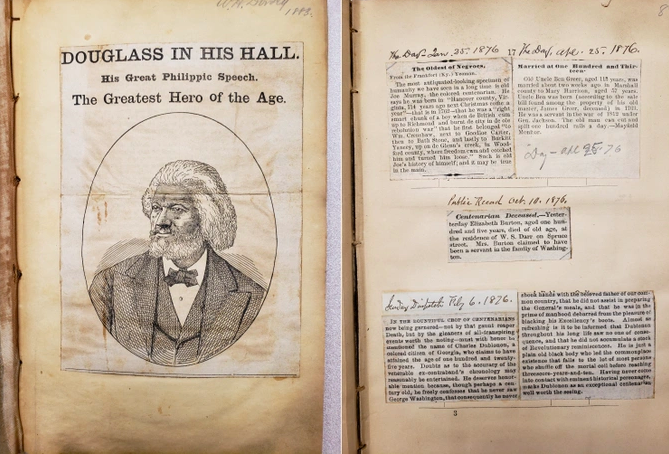 W. H. Dorsey
DOUGLASS IN HIS HALL.
His Great Philippic Speech.
The Greatest Hero of the Age.
8
The Day - Jan. 25. 1876
17 The Day, Apr. 25. 1876.
The Oldest of Negroes.
From the Frankfort (Ky.) Yeoman.
The most antiquated-looking specimen of
humanity we have seen in a long time is old
Joe Murray, the colored centenarian. He
says he was born in "Hanover county, Vir-
ginia, 114 years ago next Christmas come a
year"—that is in 1762—that he was a "right
smart chunk of a boy when de British cum
up to Richmond and burnt de sity in de ole
rebolution war" that he first belonged to
Wm. Crenshaw, next to Grediae Carter,
then to Bath Stone, and lastly to Burkill
Yancey, up on de Glenn's creek, in Wood-
ford county, where freedom cum and cotched
him and turned him loose." Such is old
Joe's history of himself; and it may be true
in the main.
Married at One Hundred and Thir-
teen.
Old Uncle Ben Greer, aged 113 years, was
married about two weeks ago in Marshall
county to Mary Harrison, aged 57 years.
Uncle Ben was born (according to the sale
bill found among the property of his old
master, James Greer, deceased) in 1763.
He was a servant in the war of 1812 under
Gen. Jackson. The old man can cut and
split one hundred rails a day.—Mayfield
Monitor.
Day - Apl 25 - 76
Public Record Oct. 10. 1876.
Centenarian Deceased.—Yester-
terday Elizabeth Burton, aged one hun-
dred and five years, died of old age, at
the residence of W. S. Darr on Spruce
street. Mrs. Burton claimed to have
been a servant in the family of Washing-
ton.
Sunday Dispatch Feby 6. 1876.
IN THE BOUNTIFUL CROP OF CENTENARIANS
now being garnered—not by that gaunt reaper
Death, but by the gleaners of all-transpiring
events worth the noting—must with honor be
mentioned the name of Charles Dubienon, a
colored citizen of Georgia, who claims to have
attained the age of one hundred and twenty-
five years. Doubts as to the accuracy of the
venerable ex-contraband's chronology may
reasonably be entertained. He deserves honor-
able mention because, though perhaps a cen-
tury old, he freely confesses that he never saw
George Washington, that consequently he never
shook hands with the beloved father of our com-
mon country, that he did not assist in preparing
the General's meals, and that he was in the
prime of manhood debarred from the pleasure of
blacking his Excellency's boots. Almost of
refreshing is it to be informed that Dubienon
throughout his long life saw no one of conse-
quence, and that he did not accumulate a stock
of Revolutionary reminiscences. He is just a
plain old black body who led the commonplace
existence that falls to the lot of most persons
who shuffle off the mortal coil before reaching
threescore-years-and-ten. Having never come
into contact with eminent historical personages,
marks Dubienon as an exceptional centenarian
well worth the seeing.
3